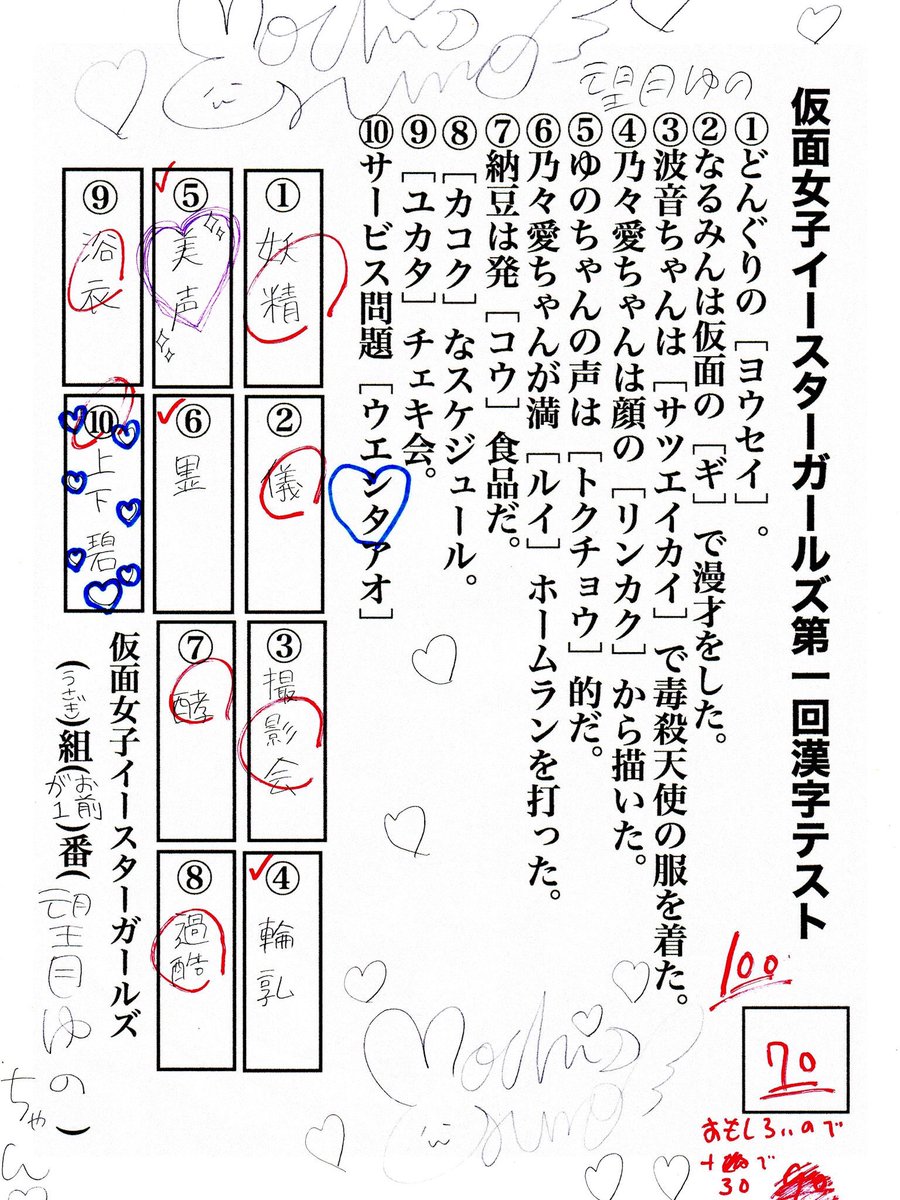 仮面女子イースターガールズ第一回漢字テスト
望月ゆの
①どんぐりの［ヨウセイ］。
②なるみんは仮面の［ギ］で漫才をした。
③波音ちゃんは［サツエイカイ］で毒殺天使の服を着た。
④乃々愛ちゃんは顔の［リンカク］から描いた。
⑤ゆのちゃんの声は［トクチョウ］的だ。
⑥乃々愛ちゃんが満［ルイ］ホームランを打った。
⑦納豆は発［コウ］食品だ。
⑧［カコク］なスケジュール。
⑨［ユカタ］チェキ会。
⑩サービス問題［ウエンタアオ］
①妖精
②儀
③撮影会
④輪乳
⑤美声
⑥
⑦酵
⑧過酷
⑨浴衣
⑩上下碧
仮面女子イースターガールズ
（うさぎ）組（お前が1）番（望月ゆの）
ちゃん
100
70
おもしろいので
+
で
30
Mochi
Yuno
Mochi
Yuno